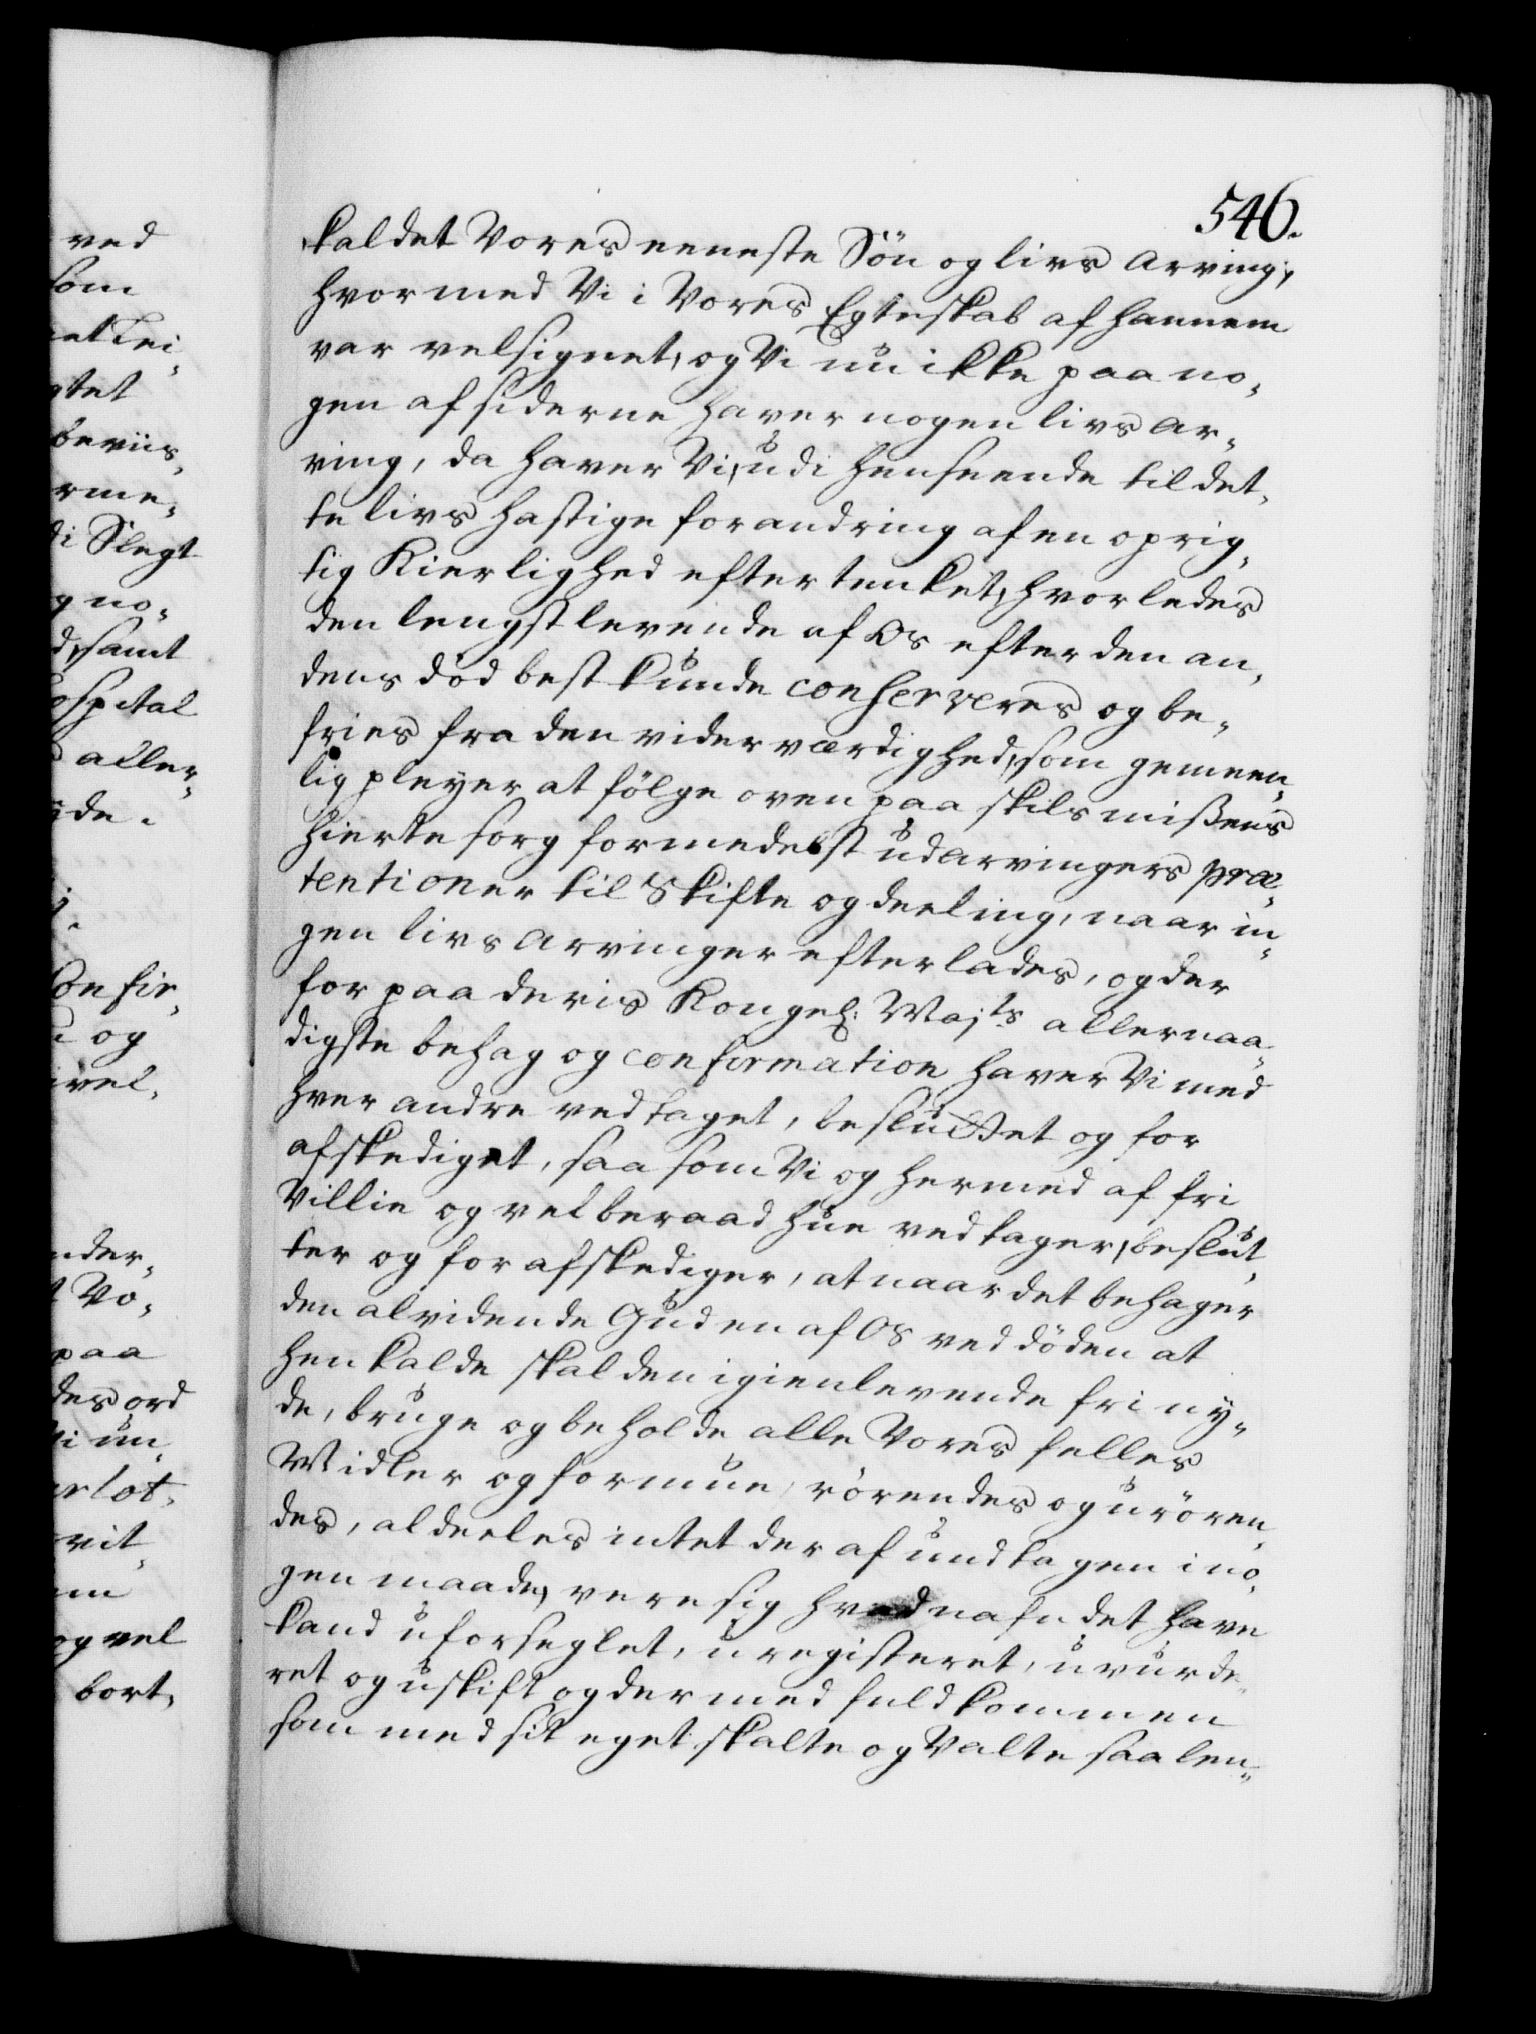 546.
kaldet Vores eeneste Sön og livs Arving,
hvormed Vi i Vores Egteskab af hannem
var velsignet, og Vi nu ikke paa no-
gen af siderne haver nogen livs Ar-
ving, da haver Vi, udi henseende til det-
te livs hastige forandring af en oprig-
tig Kierlighed eftertenket, hvorledes
den lengstlevende af Os efter den an-
dens död best kunde conserveres og be-
fries fra den viderværdighed, som gemeen-
lig pleyer at fölge oven paa skilsmißens
hierte sorg formedelst udarvingers præ-
tentioner til Skifte og deeling, naar in-
gen livs Arvinger efterlades, og der
for paa deris Kongel: Majts allernaa-
digste behag og confirmation haver Vi med
hver andre vedtaget, besluttet og for
afskediget, saa som Vi og hermed af fri
Villie og velberaad hue vedtager, beslut-
ter og forafskediger, at naar det behager
den alvidende Gud en af Os ved döden at
henkalde skal den igienlevende frie ny-
de, bruge og beholde alle Vores felles
Midler og formue, rörendes og urören-
des, aldeeles intet deraf undtagen i no-
gen maade, være sig hvad nafn det have
kand uforseglet, uregisteret, uvurde-
ret og uskift og dermed fuldkommen
som med sit eget skalte og Valte saa len-
ved
som
gtet
beviis,
rme-
di Slegt
g no-
d, samt
ospital
aller-
Confir-
og
vel,
nder-
t Vo-
paa
des ord
Vi un-
vit-
og vel
bort,